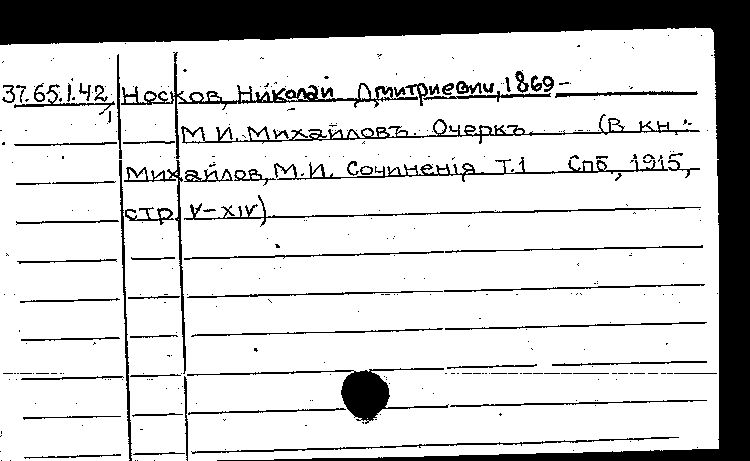 37.65.1.42,1 Носков, Николай Дмитриевич, 1869-
М.И. Михайловъ. Очеркъ. (В кн.:
Михайлов, М.И. Сочиненія. Т.1 Спб, 1915,
стр. V-XIV)